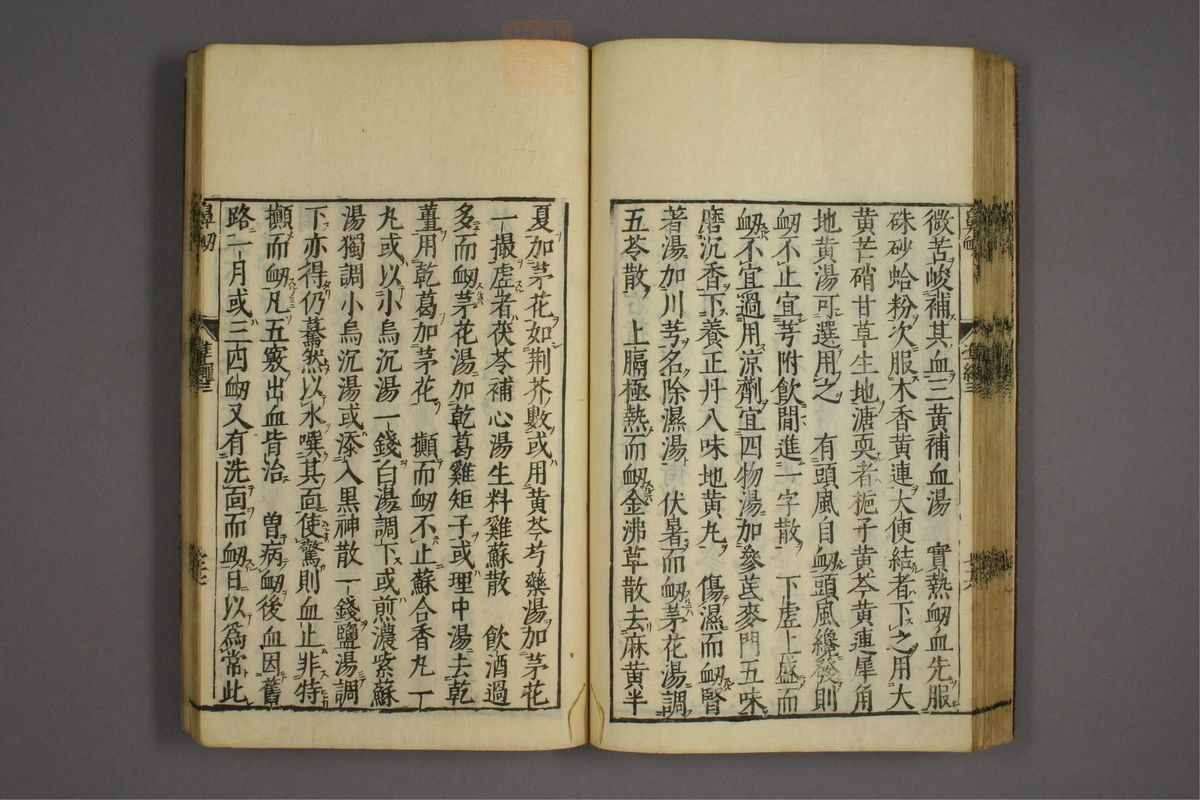 微苦峻補其血三黃補血湯　實熱衂血先服
硃砂蛤粉次服木香黃連大便結者下之用大
黃芒硝甘草生地溏耎者梔子黃芩黃連犀角
地黃湯可選用之　有頭風自衂頭風纔發則
衂不止宜芎附飲間進一字散　下虛上盛而
衂不宜過用涼劑宜四物湯加參芪麥門五味
磨沉香下養正丹八味地黃丸　傷濕而衂腎
著湯加川芎名除濕湯　伏暑而衂茅花湯調
五苓散　上膈極熱而衂金沸草散去麻黃半
夏加茅花如荊芥數或用黃芩芍藥湯加茅花
一撮虛者茯苓補心湯生料雞蘇散　飲酒過
多而衂茅花湯加乾葛雞矩子或理中湯去乾
薑用乾葛加茅花　攧而衂不止蘇合香丸一
丸或以小烏沉湯一錢白湯調下或煎濃紫蘇
湯獨調小烏沉湯或添入黑神散一錢鹽湯調
下亦得仍驀然以水噀其面使驚則血止非特
攧而衂凡五竅出血皆治　曾病衂後血因舊
路一月或三四衂又有洗面而衂日以爲常此
鼻衂